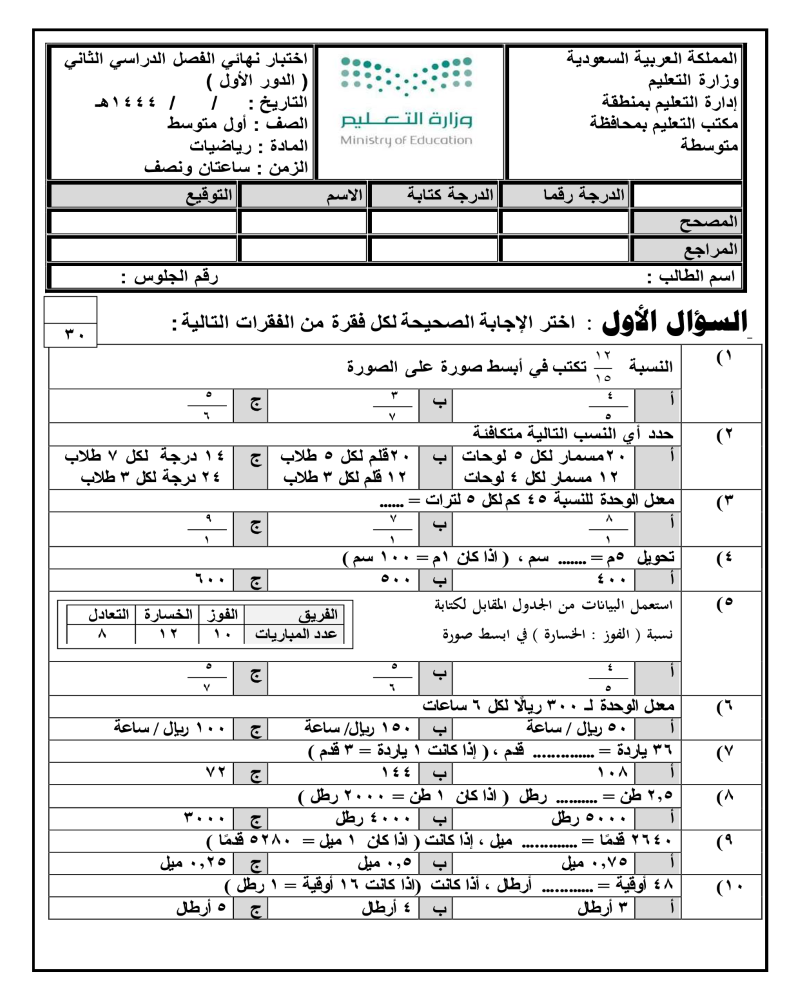 المملكة العربية السعودية
وزارة التعليم
إدارة التعليم بمنطقة
مكتب التعليم بمحافظة
متوسطة
وزارة التعـــليم
Ministry of Education
اختبار نهائي الفصل الدراسي الثاني
( الدور الأول )
التاريخ : / / ١٤٤٤هـ
الصف : أول متوسط
المادة : رياضيات
الزمن : ساعتان ونصف
الدرجة رقما الدرجة كتابة الاسم التوقيع
المصحح
المراجع
اسم الطالب : رقم الجلوس :
السؤال الأول : اختر الإجابة الصحيحة لكل فقرة من الفقرات التالية :
٣٠
١) النسبة ١٢/١٥ تكتب في أبسط صورة على الصورة
أ ٤/٥ ب ٣/٧ ج ٥/٦
٢) حدد أي النسب التالية متكافئة
أ ٢٠مسمار لكل ٥ لوحات ب ٢٠قلم لكل ٥ طلاب ج ١٤ درجة لكل ٧ طلاب
١٢ مسمار لكل ٤ لوحات ١٢ قلم لكل ٣ طلاب ٢٤ درجة لكل ٣ طلاب
٣) معدل الوحدة للنسبة ٤٥ كم لكل ٥ لترات = ......
أ ٨/١ ب ٧/١ ج ٩/١
٤) تحويل ٥م = ....... سم ، ( اذا كان ١م = ١٠٠ سم )
أ ٤٠٠ ب ٥٠٠ ج ٦٠٠
٥) استعمل البيانات من الجدول المقابل لكتابة
نسبة ( الفوز : الخسارة ) في ابسط صورة
الفريق الفوز الخسارة التعادل
عدد المباريات ١٠ ١٢ ٨
أ ٤/٥ ب ٥/٦ ج ٥/٧
٦) معدل الوحدة لـ ٣٠٠ ريالًا لكل ٦ ساعات
أ ٥٠ ريال / ساعة ب ١٥٠ ريال/ ساعة ج ١٠٠ ريال / ساعة
٧) ٣٦ ياردة = .............. قدم ، ( إذا كانت ١ ياردة = ٣ قدم )
أ ١٠٨ ب ١٤٤ ج ٧٢
٨) ٢,٥ طن = .......... رطل ( اذا كان ١ طن = ٢٠٠٠ رطل )
أ ٥٠٠٠ رطل ب ٤٠٠٠ رطل ج ٣٠٠٠
٩) ٢٦٤٠ قدمًا = ............. ميل ، إذا كانت ( اذا كان ١ ميل = ٥٢٨٠ قدمًا )
أ ٠,٧٥ ميل ب ٠,٥ ميل ج ٠,٢٥ ميل
١٠) ٤٨ أوقية = ............ أرطال ، أذا كانت (اذا كانت ١٦ أوقية = ١ رطل )
أ ٣ أرطال ب ٤ أرطال ج ٥ أرطال